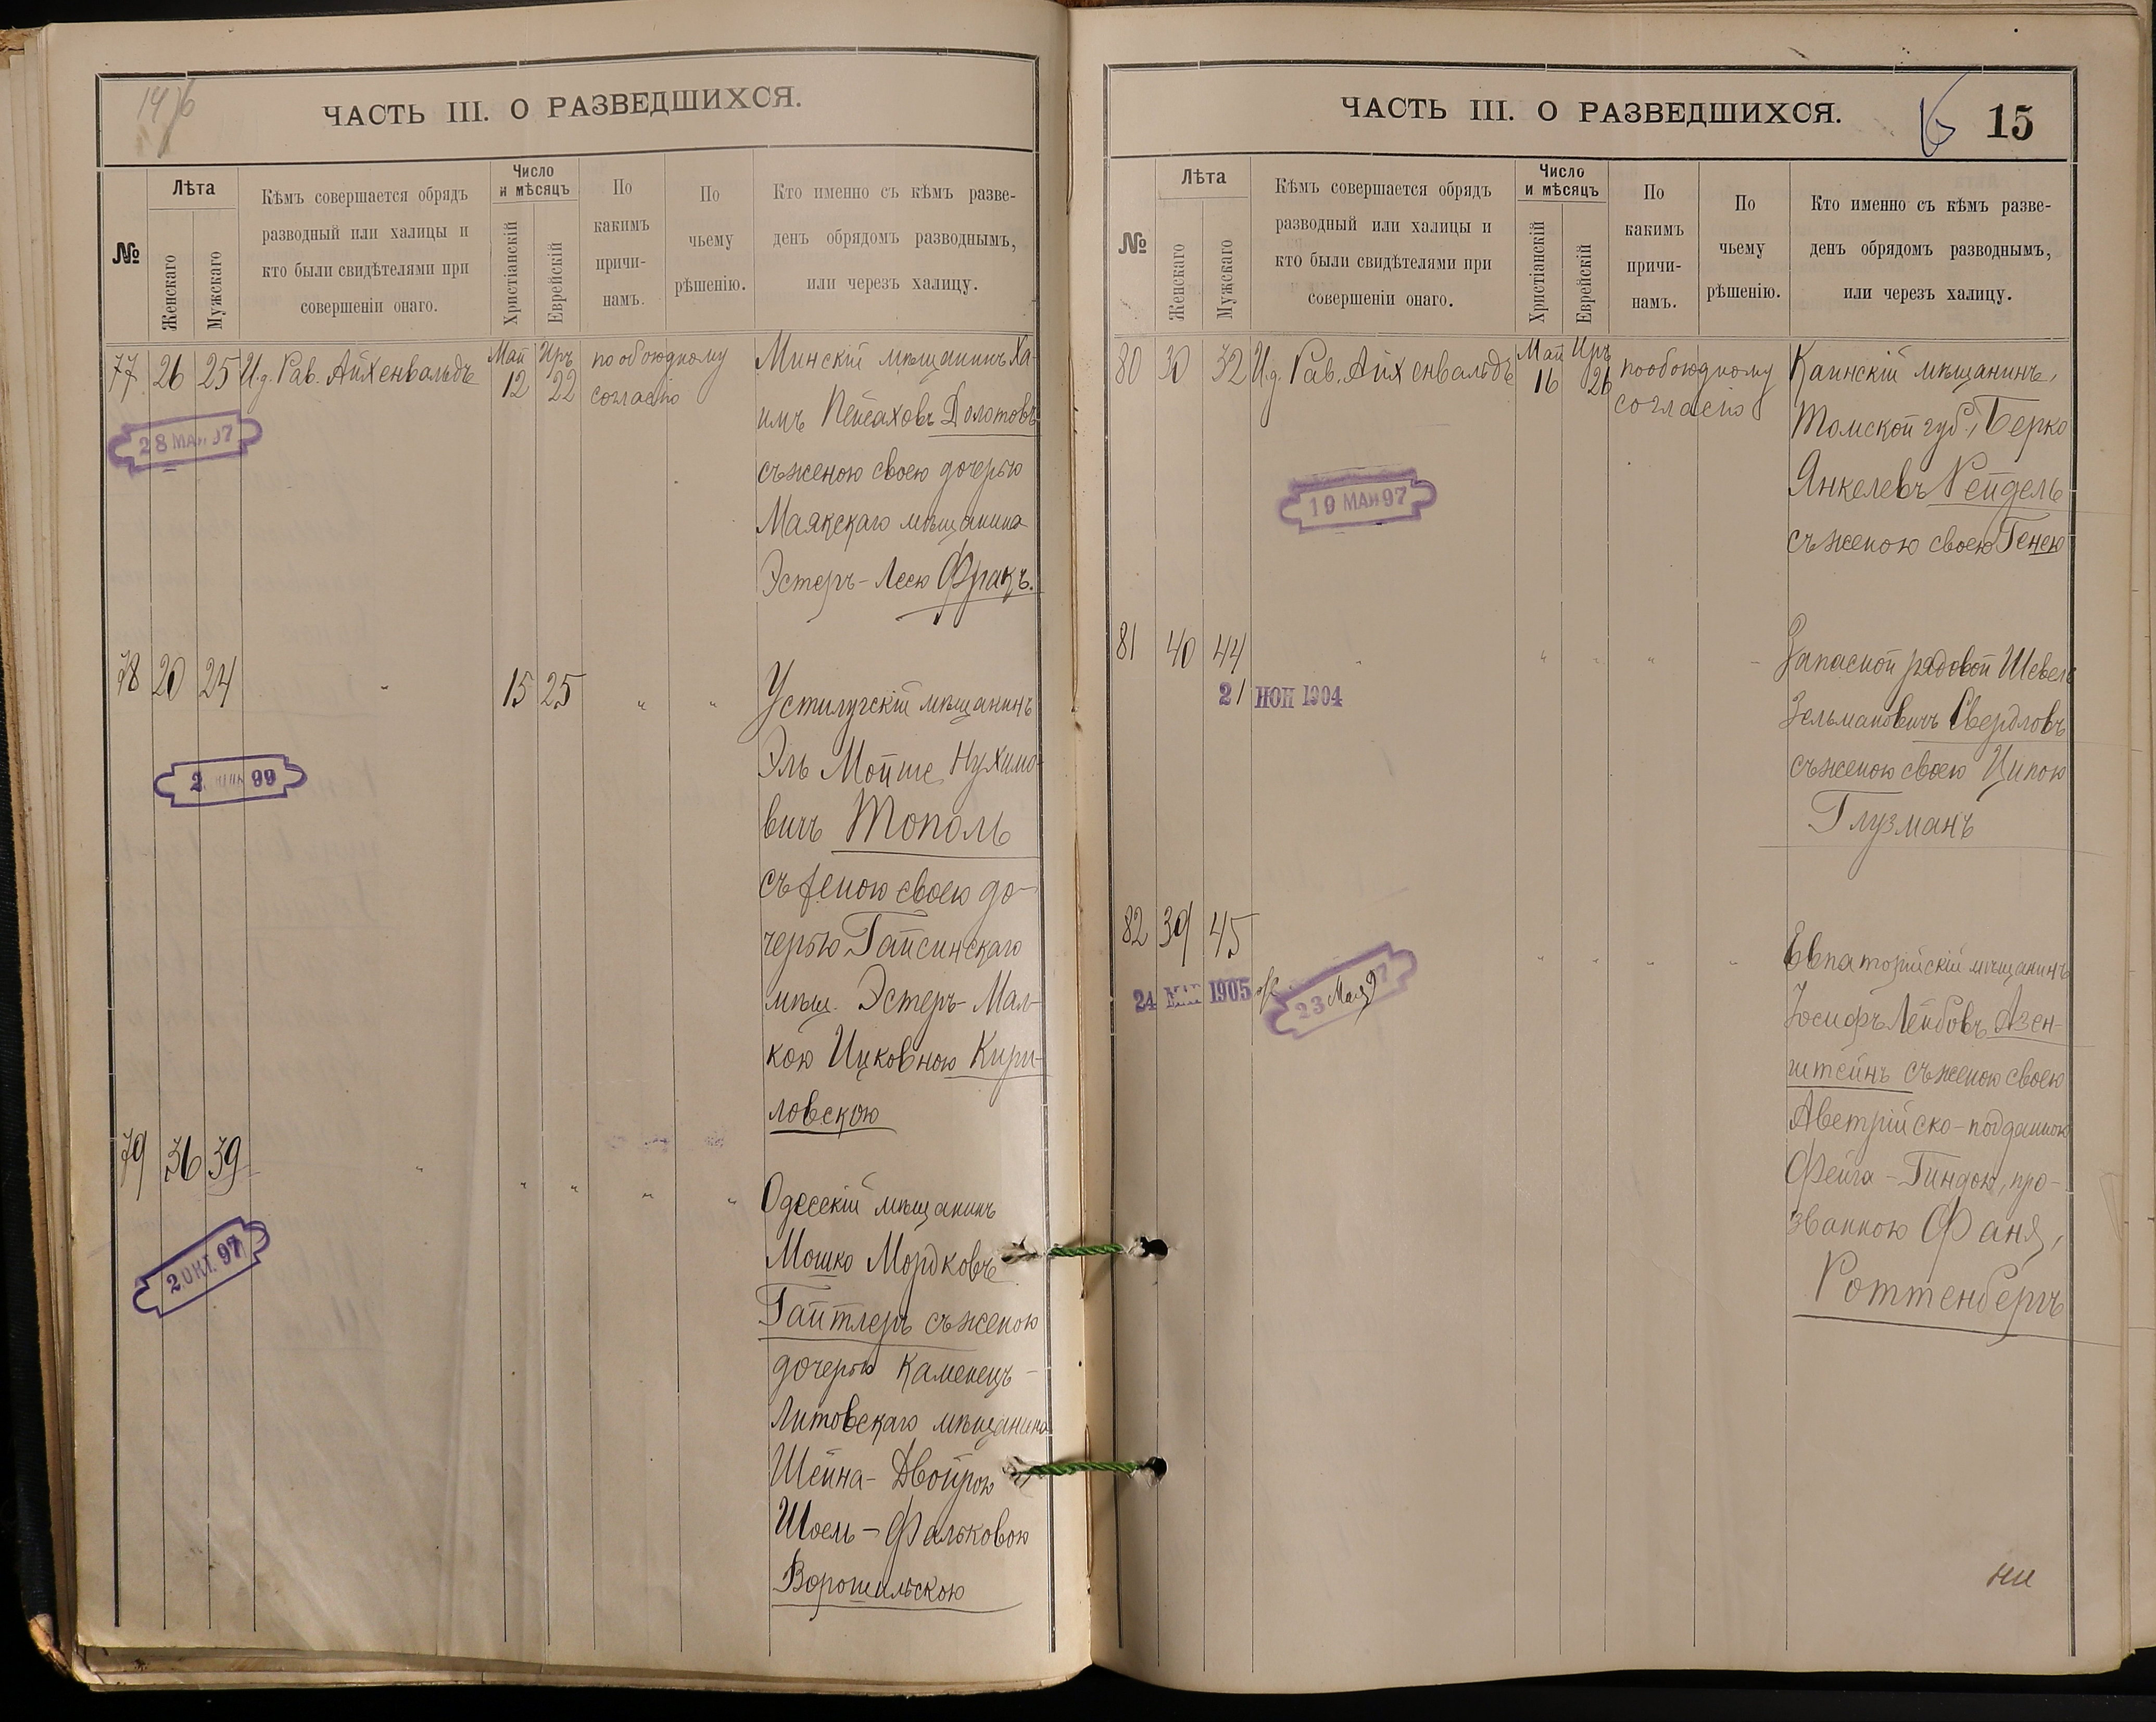 1476
ЧАСТЬ III. О РАЗВЕДШИХСЯ.
№
Лѣта
Женскаго
Мужскаго
Кѣмъ совершается обрядъ
разводный или халицы и
кто были свидѣтелями при
совершеніи онаго.
Число
и мѣсяцъ
Христіанскій
Еврейскій
По
какимъ
причи-
намъ.
По
чьему
рѣшенію.
Кто именно съ кѣмъ разве-
денъ обрядомъ разводнымъ,
или черезъ халицу.
77 26 25 И.д. Рав. Айхенвальдъ
Май 12
Иръ 22
по обоюдному
согласію
Минскій мѣщанинъ Ха-
имъ Пейсаховъ Долотовъ
съ женою своею дочерью
Маякскаго мѣщанина
Эстеръ-Леею Фракъ.
28 МАЯ 97
78 20 24 " 15 25 " "
Устилугскій мѣщанинъ
Эль Мойше Нухимо-
вичъ Тополь
съ женою своею до-
черью Гайсинскаго
мѣщ. Эстеръ-Мал-
кою Ицковною Кири-
ловскою
2 99
79 36 39 " " " " "
Одесскій мѣщанинъ
Мошко Мордковъ
Гайтлеръ съ женою
дочерью Каменецъ-
Литовскаго мѣщанина
Шейна-Двойрою
Шоель-Фальковою
Ворошильскою
2 ОКТ. 97
ЧАСТЬ III. О РАЗВЕДШИХСЯ.
15
№
Лѣта
Женскаго
Мужскаго
Кѣмъ совершается обрядъ
разводный или халицы и
кто были свидѣтелями при
совершеніи онаго.
Число
и мѣсяцъ
Христіанскій
Еврейскій
По
какимъ
причи-
намъ.
По
чьему
рѣшенію.
Кто именно съ кѣмъ разве-
денъ обрядомъ разводнымъ,
или черезъ халицу.
80 30 32 И.д. Рав. Айхенвальдъ
Май 16
Иръ 26
по обоюдному
согласію
Каинскій мѣщанинъ,
Томской губ., Берко
Янкелевъ Рейдель
съ женою своею Генею
19 МАЯ 97
81 40 44 " " " " "
Запасной рядовой Шевель
Зельмановичъ Свердловъ
съ женою своею Ципою
Глузманъ
21 ІЮН 1904
82 39 45 " " " "
Евпаторійскій мѣщанинъ
Іосифъ Лейбовъ Азен-
штейнъ съ женою своею
Австрійско-подданною
Фейга-Гиндою, про-
званною Фаня,
Роттенбергъ
24 МАЯ 1905
23 Мая 97